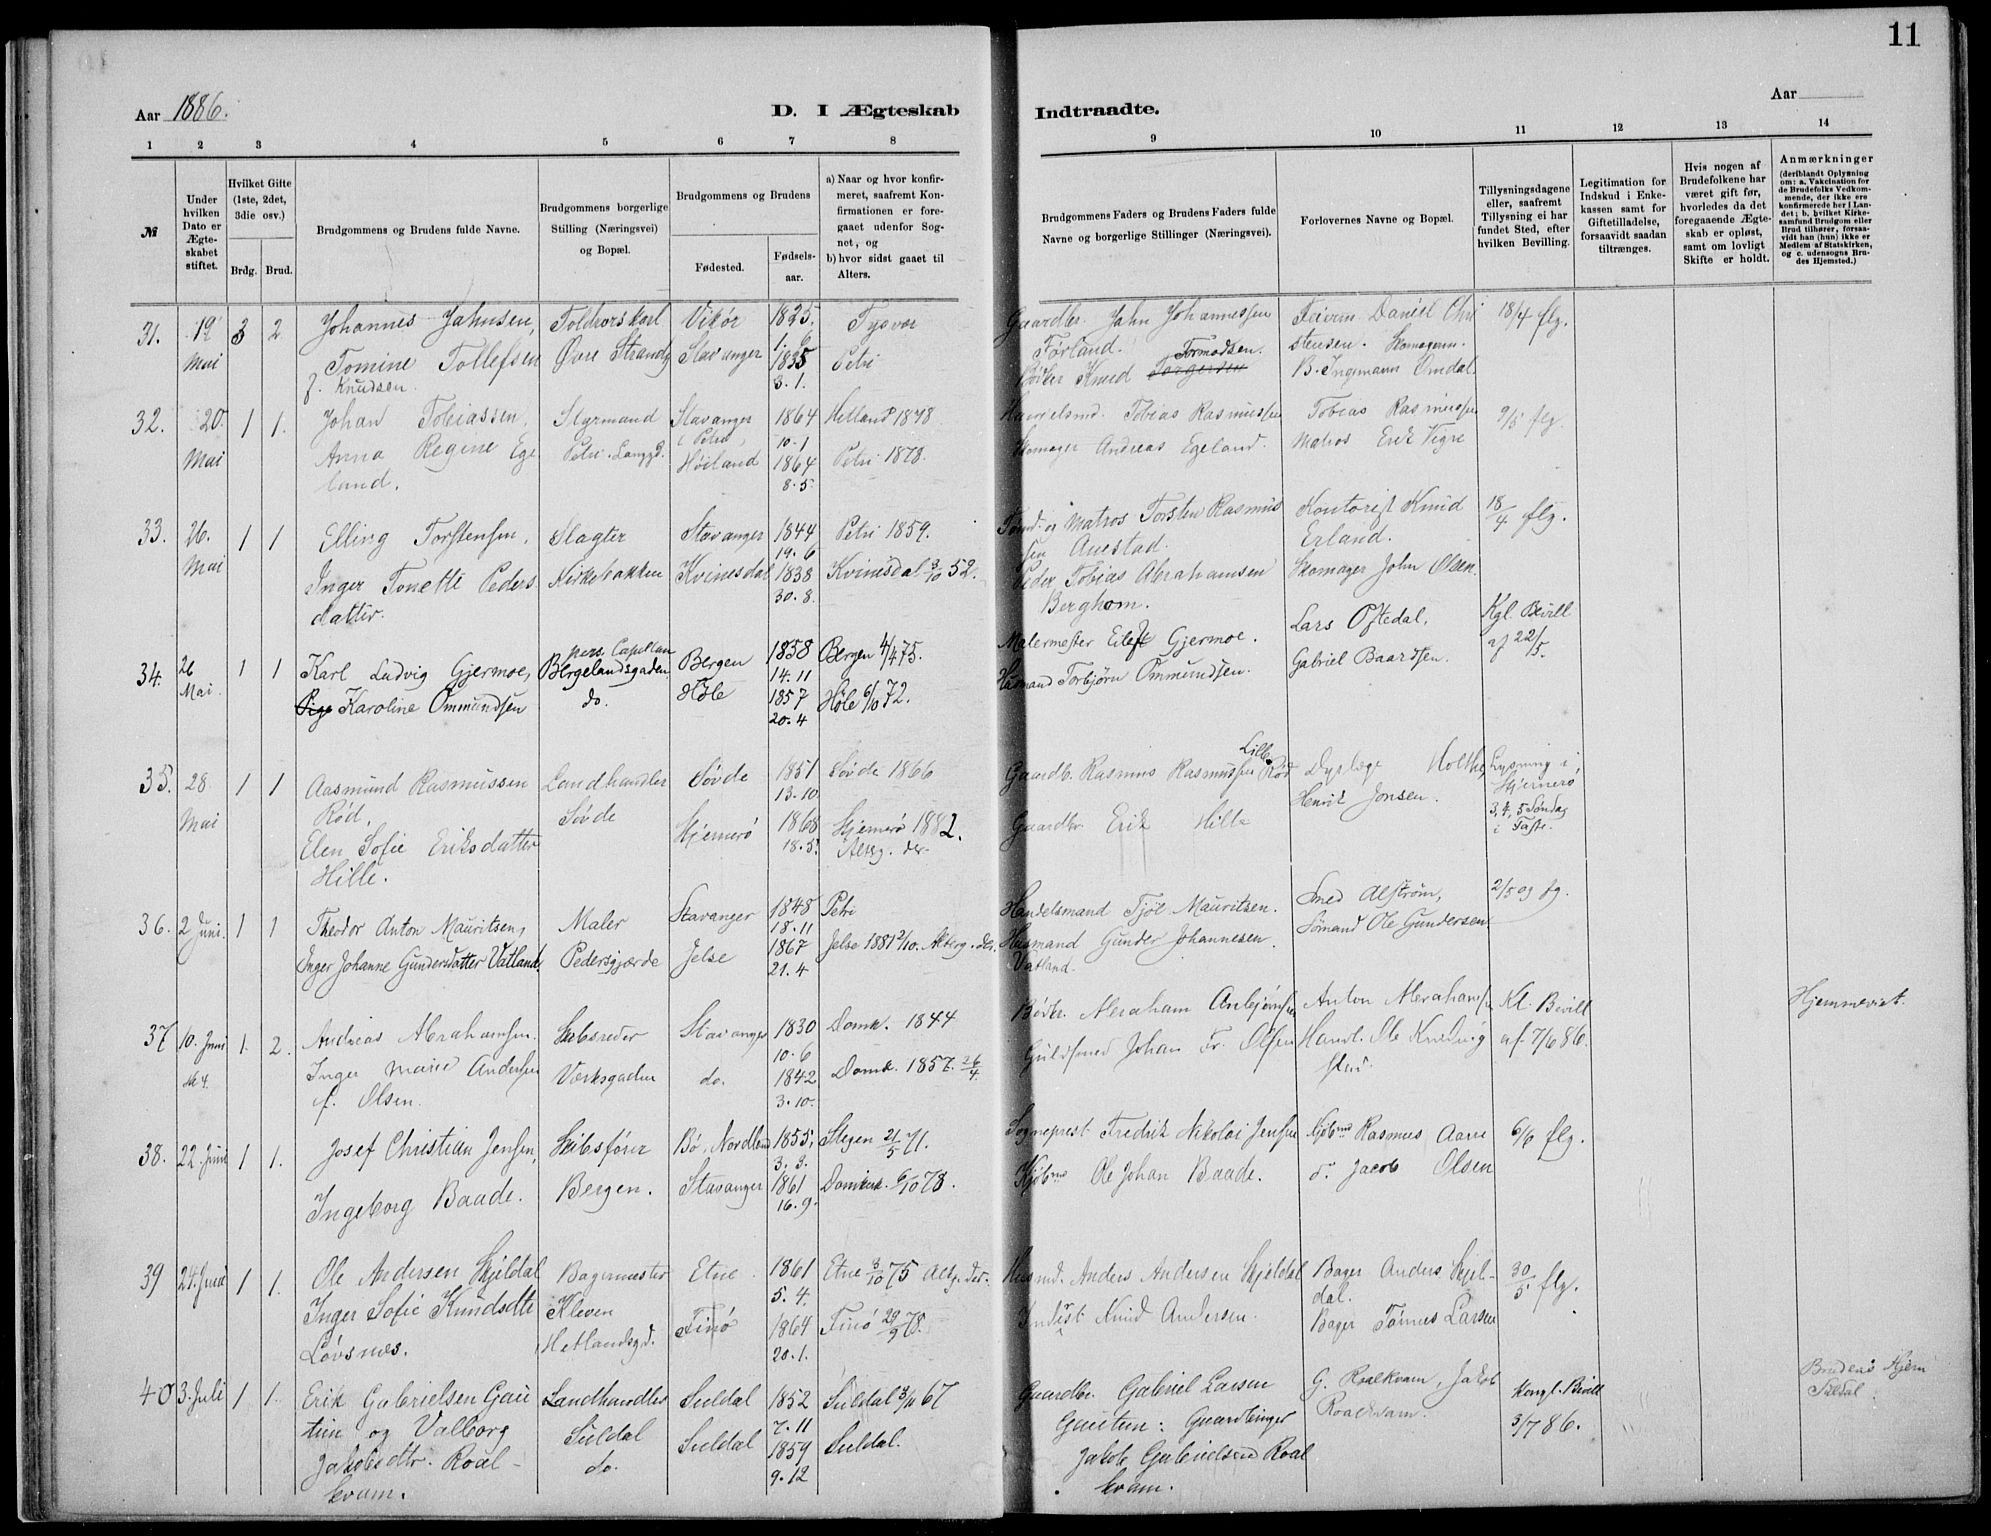 11
Aar 1886.
D. I Ægteskab
Indtraadte.
Aar
1 2 3 4 5 6 7 8
9 10 11 12 13 14
№
Under hvilken Dato er Ægteskabet stiftet.
Hvilket Gifte (1ste, 2det, 3die osv.)
Brdg. Brud.
Brudgommens og Brudens fulde Navne.
Brudgommens borgerlige Stilling (Næringsvei) og Bopæl.
Brudgommens og Brudens
Fødested.
Fødselsaar.
a) Naar og hvor konfirmeret, saafremt Konfirmationen er foregaaet udenfor Sognet, og
b) hvor sidst gaaet til Alters.
Brudgommens Faders og Brudens Faders fulde Navne og borgerlige Stillinger (Næringsvei).
Forlovernes Navne og Bopæl.
Tillysningsdagene eller, saafremt Tillysning ei har fundet Sted, efter hvilken Bevilling.
Legitimation for Indskud i Enkekassen samt for Giftetilladelse, forsaavidt saadan tiltrænges.
Hvis nogen af Brudefolkene har været gift før, hvorledes da det foregaaende Ægteskab er opløst, samt om lovligt Skifte er holdt.
Anmærkninger
(deriblandt Oplysning om: a. Vakcination for de Brudefolks Vedkommende, der ikke ere konfirmerede her i Landet; b. hvilket Kirkesamfund Brudgom eller Brud tilhører, forsaavidt han (hun) ikke er Medlem af Statskirken, og c. udensogns Brudes Hjemsted.)
31. 19 Mai 3 2
Johannes Jahnsen,
Tomine Tollefsen
f. Knudsen.
Toldrorskarl
Øvre Strandg
Vikør
Stavanger
1825.
1. 6
1835
3. 1.
Tysvær
Petri
Gaardbr. Jahn Johannessen
Førland.
Tormodsen.
Bødker Knud
Feierm. Daniel Chri
stensen. Skomagerm.
B. Ingmann Omdal
18/4 flg.
32. 20. Mai 1 1.
Johan Tobiassen,
Anna Regine Ege
land.
Styrmand
Petri. Langgd.
Stavanger
(Petri)
Høiland
1864
10-1
1864
8.5.
Hetland 1878
Petri 1878.
Handelsmd. Tobias Rasmussen
Skomager Andreas Egeland.
Tobias Rasmussen
Matros Erik Vigre
9/5 flg.
33. 26. Mai 1 1
Elling Torstensen,
Inger Tonette Peders
datter.
Slagter
Kirkebakken
Stavanger
Kvinesdal
1844
19. 6
1838
30. 8.
Petri 1859.
Kvinesdal 3/10 52.
Tømd. og Matros Torsten Rasmus
sen Auestad.
Peder Tobias Abrahamsen
Berghom.
Kontorist Knud
Erland.
Skomager John Olsen.
18/4 flg.
34. 26 Mai 1 1
Karl Ludvig Gjermoe,
Pige Karoline Ommundsen
pers. Capellan
Bergelandsgaden
do.
Bergen
Høle
1858
14.11
1857
20.4
Bergen 4/4 75.
Høle 6/10 72.
Malermester Eilef Gjermoe.
Husmand Torbjørn Ommundsen.
Lars Oftedal,
Gabriel Baardsen.
Kgl. Bevill
af 22/5.
35. 28. Mai 1 1
Aasmund Rasmussen
Rød,
Elen Sofie Eriksdatter
Hille.
Landhandler
Søvde
Søvde
Hjernerø
1851
13.10
1868
18.5.
Søvde 1866
Hjernerø 1882.
Altsg. der.
Gaardb. Rasmus Rasmussen Lille Rød
Gaardbr Erik Hille
Dyrlæge Holthe
Henrik Jonsen.
Lysning i
Hjernerø
3, 4, 5 Søndag
i Faste.
36. 2 Juni. 1 1
Theodor Anton Mauritsen,
Inger Johanne Gundersdatter Vatland.
Maler
Pedersgjærde
Stavanger
Jelse
1848
18.11
1867
21.4
Petri
Jelse 1881 2/10. Altberg. der.
Handelsmand Tjøl Mauritsen.
Husmand Gunder Johannesen.
Vatland.
Smed Alstrøm,
Sømand Ole Gundersen
2/5 og fg.
37 10. Juni 1. 2.
Andreas Abrahamsen.
Inger Marie Andersen
f. Olsen.
Skibsreder
Verksgaden
Stavanger
do.
1830
10.6
1842
3.10.
Domk. 1844
Domk. 1857. 26/4.
Bødkr. Abraham Anbjørnsen
Guldsmed Johan Fr. Olsen
Anton Abrahamsen
Handl. Ole Knudsig
stad.
Kl. Bevill
af 7/6 86.
Hjemmeviet.
38. 22. Juni 1 1.
Josef Christian Jensen,
Ingeborg Baade.
Skibsfører
Bergen.
Bø, Nordland
Stavanger
1855,
3. 3.
1861
16. 9.
Stegen 21/5 71.
Domkirk. 6/10 78.
Sogneprest Fredrik Nikolai Jensen
Kjøbmd Ole Johan Baade.
Kjøbmd Rasmus Aare
do. Jacob Olsen
6/6 flg.
39 24. Juni 1 1.
Ole Andersen Skjeldal
Inger Sofie Knudsdtr
Løvsnes.
Bagermester
Kleven
Hetlandsgd.
Etne
Finø
1861
5. 4.
1864
20.1.
Etne 3/10 75 Altg. der.
Finø 29/9 78.
Husmd. Anders Andersen Skjeldal
Inderst Knud Andersen.
Bager Anders Skjel-
dal.
Bager Tønnes Larsen
30/5 flg.
40 3. Juli 1 1.
Erik Gabrielsen Gau
tun og Valborg
Jakobsdtr. Roal-
kvam.
Landhandler
Suldal
do.
Suldal
Suldal
1852
7.11
1859
9.12
Suldal 3/11 67
Suldal.
Gaardbr. Gabriel Larsen
Gautun: Gaardbruger
Jakob Gabrielsen Roal
kvam.
G. Roalkvam, Jakob
Roalkvam.
Kongl. Bevill
3/7 86.
Brudens Hjem
Suldal.